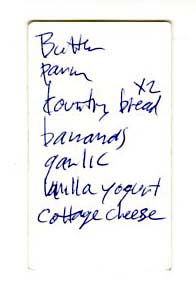 Butter
parm
x2
country bread
bananas
garlic
Vanilla yogurt
cottage cheese